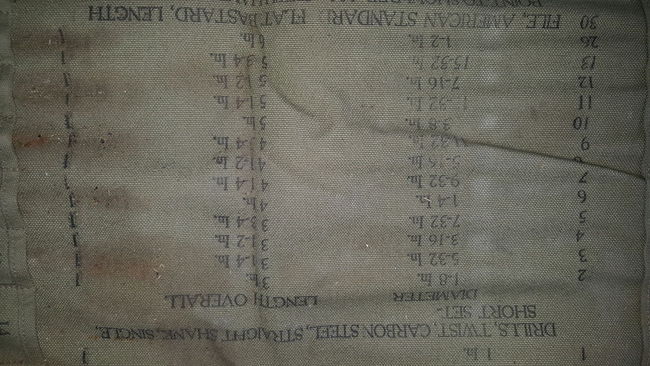 1 1 In. 1
DRILLS, TWIST, CARBON STEEL, STRAIGHT SHANK, SINGLE,
SHORT SET-
DIAMETER LENGTH OVERALL
2 1-8 In. 3 In. 1
3 5-32 In. 3 1-4 In. 1
4 3-16 In. 3 1-2 In. 1
5 7-32 In. 3 3-4 In. 1
6 1-4 In. 4 In. 1
7 9-32 In. 4 1-4 In. 1
8 5-16 In. 4 1-2 In. 1
9 11-32 In. 4 3-4 In. 1
10 3-8 In. 5 In. 1
11 In. 5 1-4 In. 1
12 7-16 In. 5 1-2 In. 1
13 15-32 In. 5 3-4 In. 1
26 1-2 In. 6 In. 1
30 FILE, AMERICAN STANDARD FLAT BASTARD, LENGTH
POINT TO SHOULDER